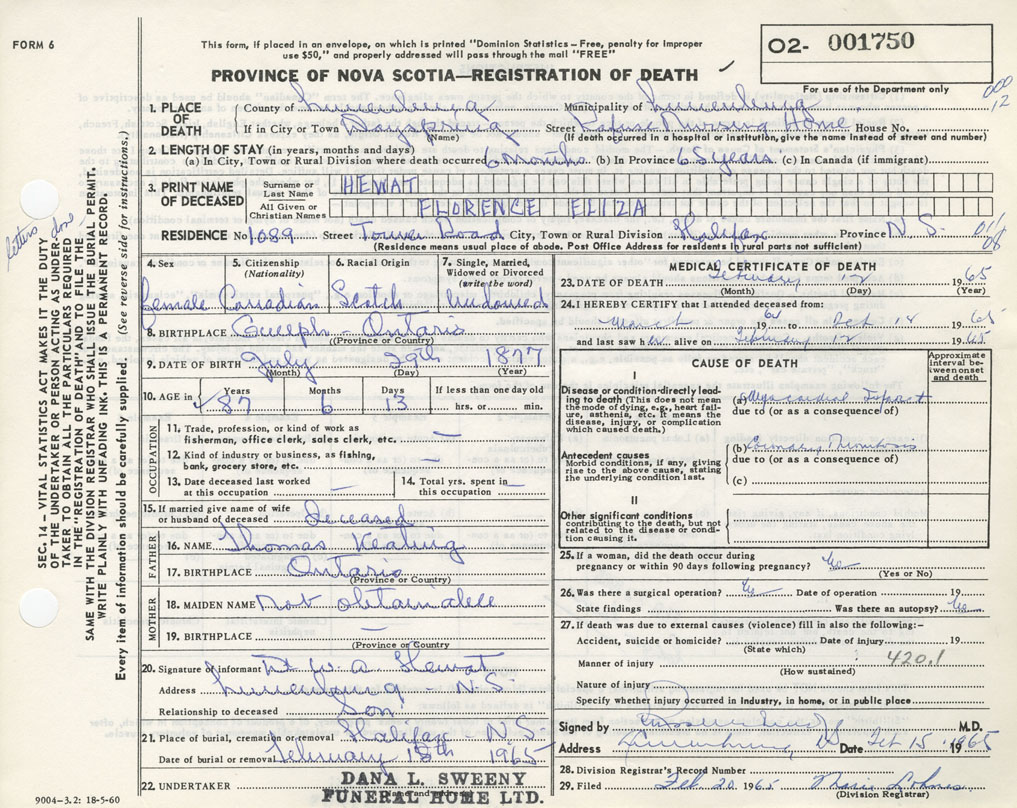 FORM 6
This form, if placed in an envelope, on which is printed "Dominion Statistics — Free, penalty for improper
use $50," and properly addressed will pass through the mail "FREE"
PROVINCE OF NOVA SCOTIA—REGISTRATION OF DEATH
O2- 001750
For use of the Department only
000
12
1. PLACE OF DEATH
County of Lunenburg Municipality of Lunenburg
If in City or Town Dayspring Street Nursing Home House No.
(Name) (If death occurred in a hospital or institution, give the name instead of street and number)
2. LENGTH OF STAY (in years, months and days)
(a) In City, Town or Rural Division where death occurred 6 months (b) In Province 65 years (c) In Canada (if immigrant)
3. PRINT NAME OF DECEASED
Surname or Last Name HEWAT
All Given or Christian Names FLORENCE ELIZA
RESIDENCE No 1089 Street Tower Road City, Town or Rural Division Halifax Province N.S.
(Residence means usual place of abode. Post Office Address for residents in rural parts not sufficient)
SEC. 14 — VITAL STATISTICS ACT MAKES IT THE DUTY
OF THE UNDERTAKER OR PERSON ACTING AS UNDER-
TAKER TO OBTAIN ALL THE PARTICULARS REQUIRED
IN THE "REGISTRATION OF DEATH" AND TO FILE THE
SAME WITH THE DIVISION REGISTRAR WHO SHALL ISSUE THE BURIAL PERMIT.
WRITE PLAINLY WITH UNFADING INK. THIS IS A PERMANENT RECORD.
Every item of information should be carefully supplied. (See reverse side for instructions.)
4. Sex Female
5. Citizenship (Nationality) Canadian
6. Racial Origin Scotch
7. Single, Married, Widowed or Divorced (write the word) Widowed
8. BIRTHPLACE Guelph - Ontario
(Province or Country)
9. DATE OF BIRTH July 29th 1877
(Month) (Day) (Year)
10. AGE in Years 87 Months 6 Days 13 If less than one day old hrs. or min.
OCCUPATION
11. Trade, profession, or kind of work as
fisherman, office clerk, sales clerk, etc. —
12. Kind of industry or business, as fishing,
bank, grocery store, etc. —
13. Date deceased last worked
at this occupation —
14. Total yrs. spent in
this occupation —
15. If married give name of wife
or husband of deceased Deceased
FATHER
16. NAME Thomas Kealing
17. BIRTHPLACE Ontario
(Province or Country)
MOTHER
18. MAIDEN NAME Not obtainable
19. BIRTHPLACE —
(Province or Country)
20. Signature of informant W. A. Hewat
Address Lunenburg - N.S.
Relationship to deceased Son
21. Place of burial, cremation or removal Halifax N.S.
Date of burial or removal February 1965
22. UNDERTAKER
DANA L. SWEENY
FUNERAL HOME LTD.
9004-3.2: 18-5-60
MEDICAL CERTIFICATE OF DEATH
23. DATE OF DEATH February 12 1965
(Month) (Day) (Year)
24. I HEREBY CERTIFY that I attended deceased from:
March 1964 to Feb 12 1965
and last saw her alive on February 12 1965
CAUSE OF DEATH
Approximate interval between onset and death
I
Disease or condition directly lead-
ing to death (This does not mean
the mode of dying, e.g., heart fail-
ure, asthenia, etc. It means the
disease, injury, or complication
which caused death.)
(a) Myocardial Infarct
due to (or as a consequence of)
Antecedent causes
Morbid conditions, if any, giving
rise to the above cause, stating
the underlying condition last.
(b) Coronary Thrombosis
due to (or as a consequence of)
(c)
II
Other significant conditions
contributing to the death, but not
related to the disease or condi-
tion causing it.
25. If a woman, did the death occur during
pregnancy or within 90 days following pregnancy? No
(Yes or No)
26. Was there a surgical operation? No Date of operation 19
State findings Was there an autopsy? No
27. If death was due to external causes (violence) fill in also the following:-
Accident, suicide or homicide? Date of injury 19
(State which)
Manner of injury 420.1
(How sustained)
Nature of injury
Specify whether injury occurred in industry, in home, or in public place
Signed by M.D.
Address Lunenburg NS Date Feb 15 1965
28. Division Registrar's Record Number
29. Filed Feb 20 1965
(Division Registrar)